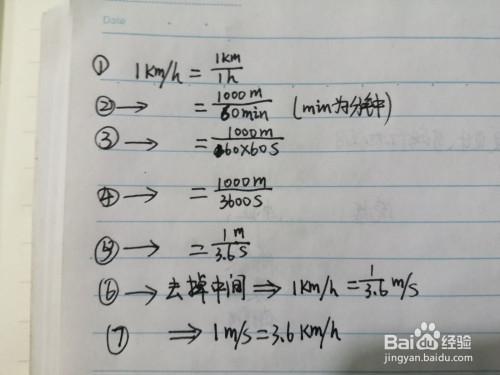 Date
① 1Km/h = 1Km/1h
② → = 1000m/60min (min为分钟)
③ → = 1000m/60×60S
④ → = 1000m/3600S
⑤ → = 1m/3.6S
⑥ → 去掉中间 ⇒ 1Km/h = 1/3.6 m/s
⑦ ⇒ 1m/s = 3.6Km/h
Baidu经验
jingyan.baidu.com